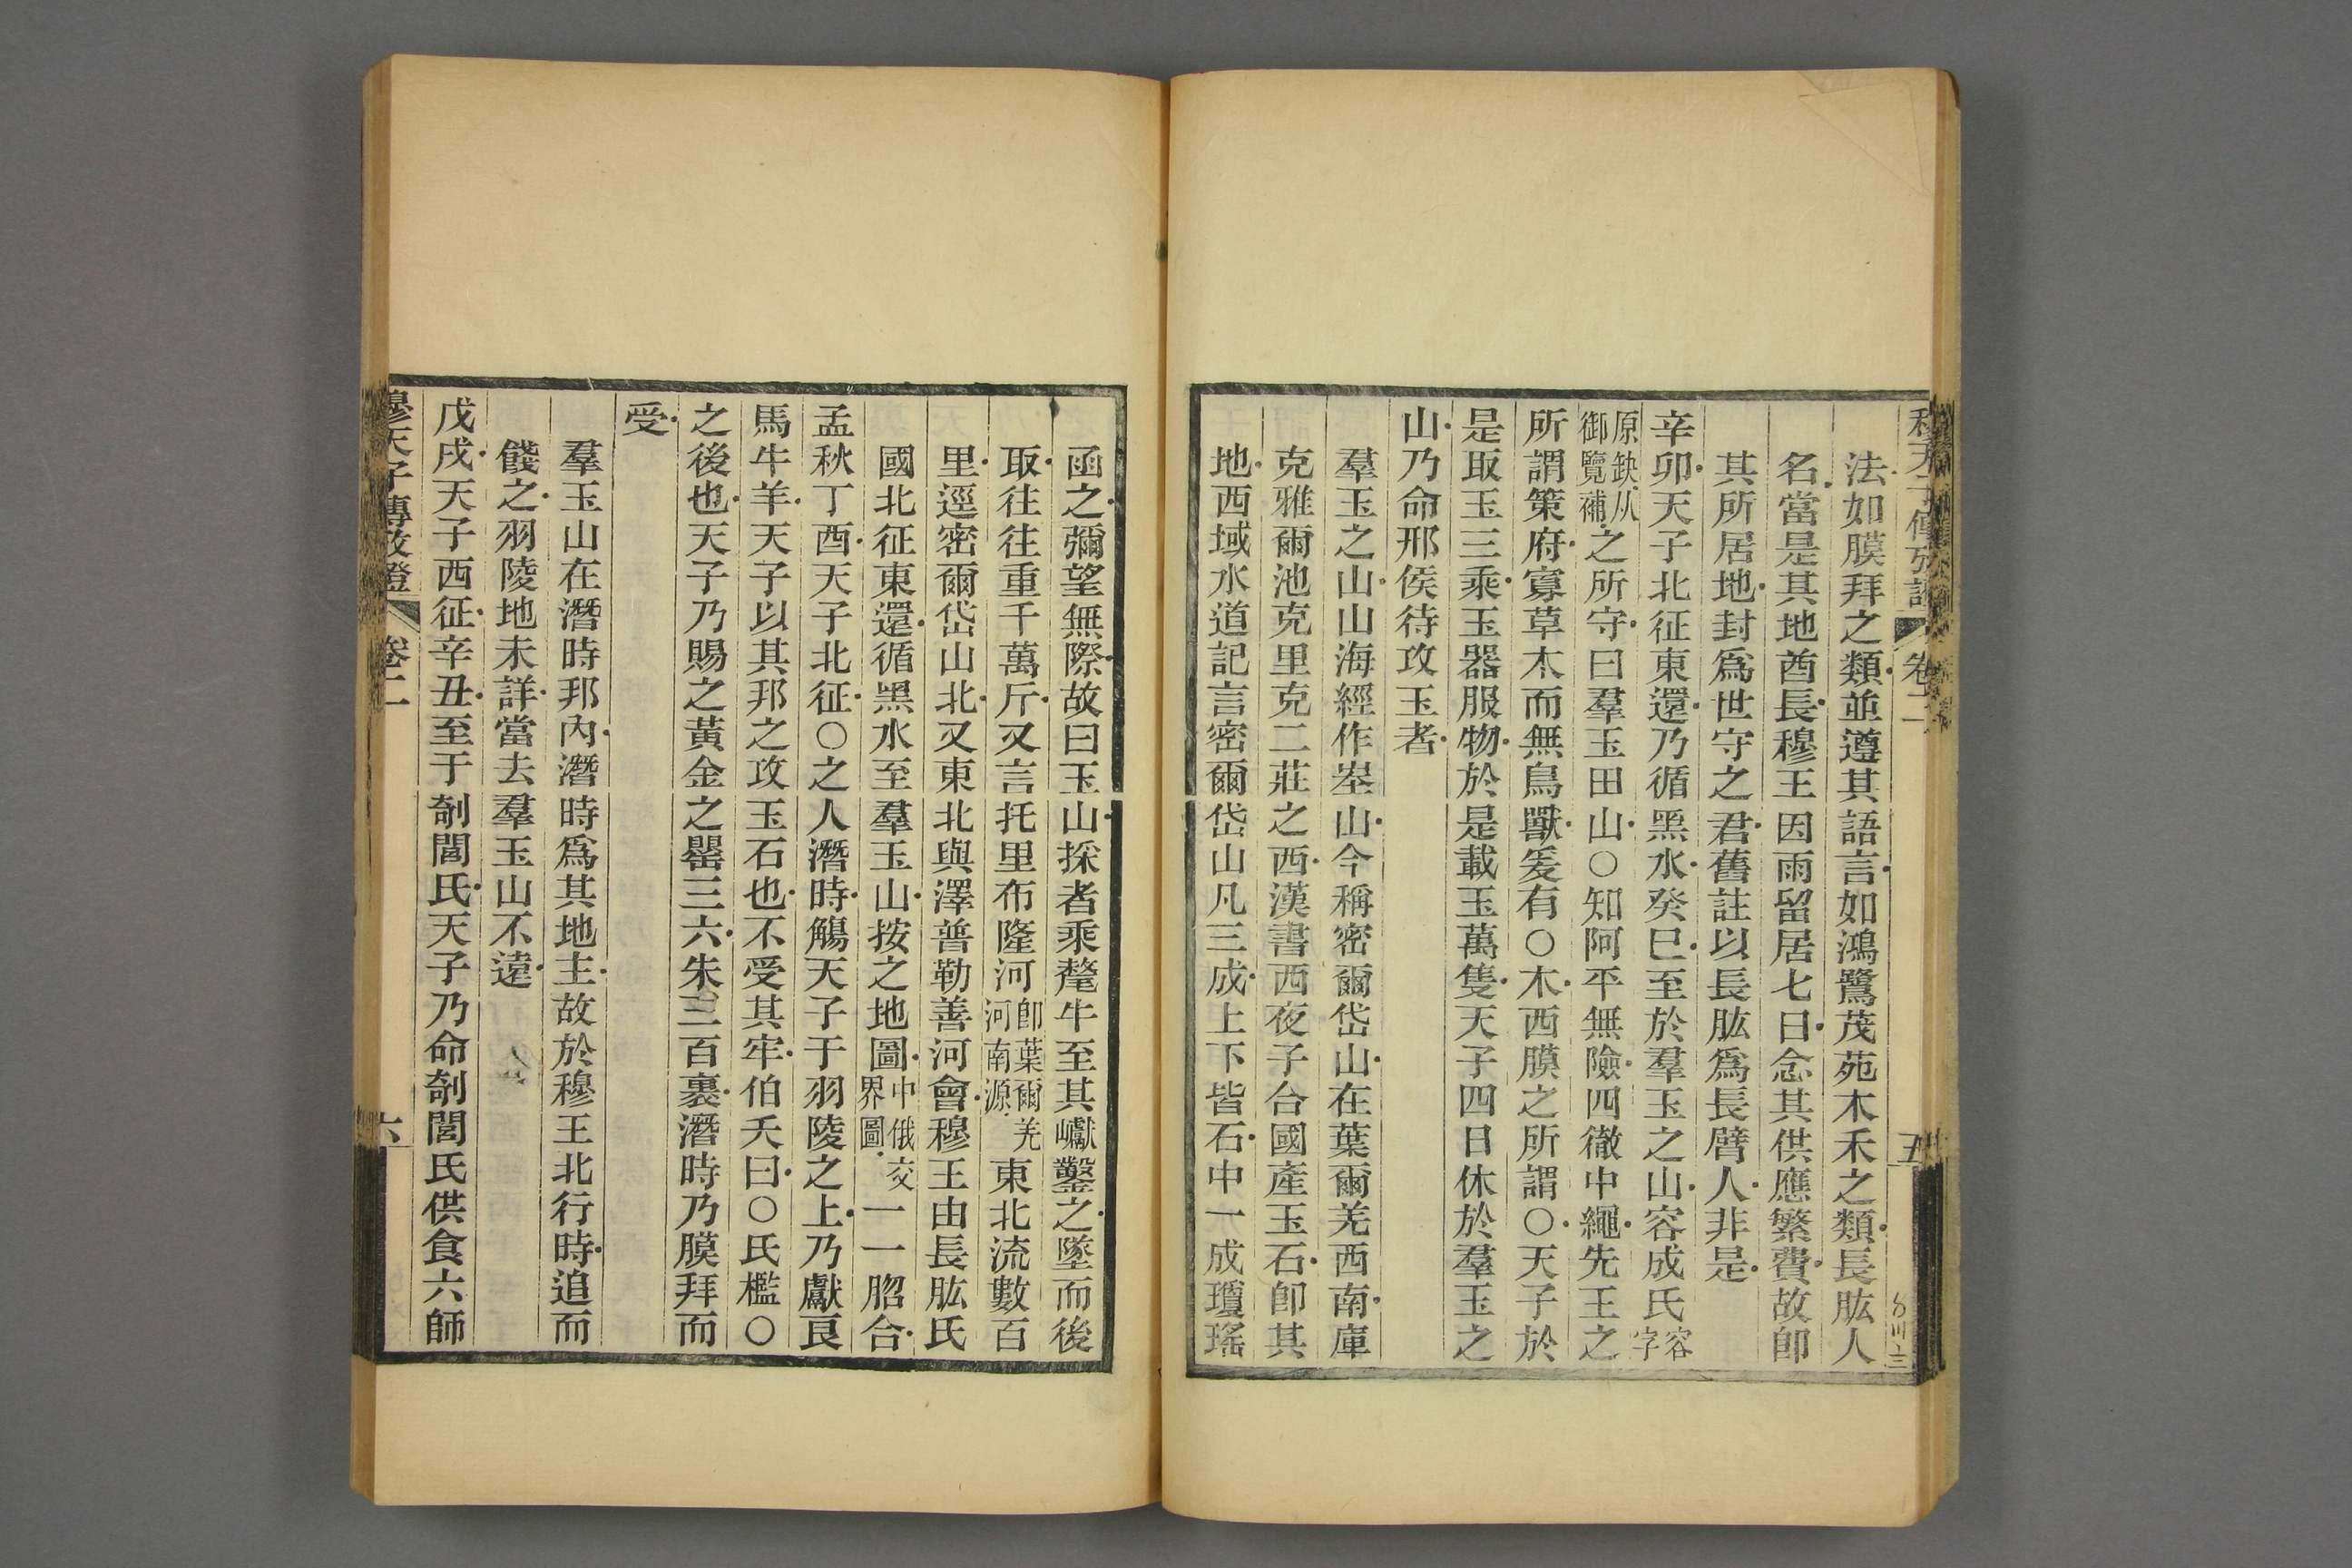 穆天子傳攷證 卷二 五
法如膜拜之類並遵其語言如鴻鷺茂苑木禾之類長肱人
名當是其地酋長穆王因雨留居七日念其供應繁費故卽
其所居地封爲世守之君舊註以長肱爲長臂人非是
辛卯天子北征東還乃循黑水癸巳至於羣玉之山容成氏容字
原缺从御覽補之所守曰羣玉田山○知阿平無險四徹中繩先王之
所謂策府寡草木而無鳥獸爰有○木西膜之所謂○天子於
是取玉三乘玉器服物於是載玉萬隻天子四日休於羣玉之
山乃命邢侯待攻玉者
羣玉之山山海經作峚山今稱密爾岱山在葉爾羌西南庫
克雅爾池克里克二莊之西漢書西夜子合國產玉石卽其
地西域水道記言密爾岱山凡三成上下皆石中一成瓊瑤
函之彌望無際故曰玉山採者乘氂牛至其巘鑿之墜而後
取往往重千萬斤又言托里布隆河卽葉爾羌河南源東北流數百
里逕密爾岱山北又東北與澤普勒善河會穆王由長肱氏
國北征東還循黑水至羣玉山按之地圖中俄交界圖一一脗合
孟秋丁酉天子北征○之人潛時觴天子于羽陵之上乃獻良
馬牛羊天子以其邦之攻玉石也不受其牢伯夭曰○氏檻○
之後也天子乃賜之黃金之罌三六朱三百裹潛時乃膜拜而
受
羣玉山在潛時邦內潛時爲其地主故於穆王北行時追而
餞之羽陵地未詳當去羣玉山不遠
戊戌天子西征辛丑至于剞閭氏天子乃命剞閭氏供食六師
穆天子傳攷證 卷二 六